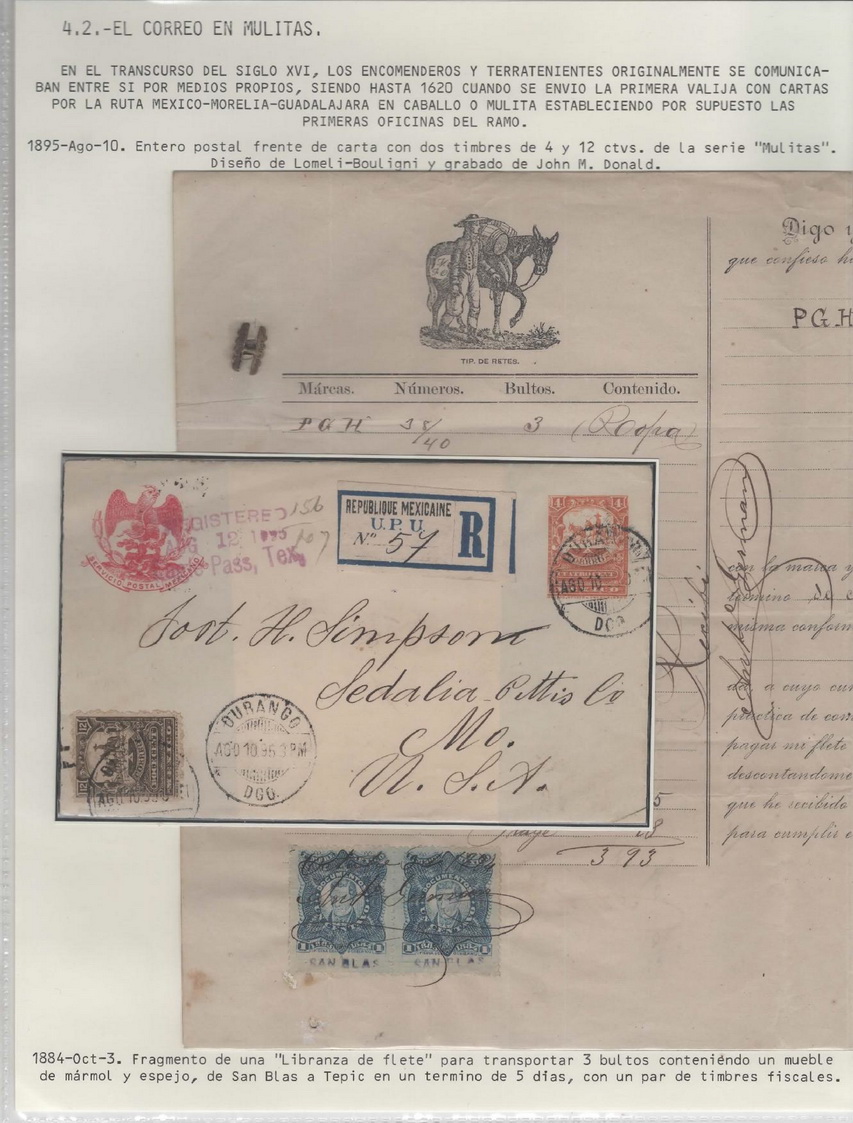 4.2.-EL CORREO EN MULITAS.
EN EL TRANSCURSO DEL SIGLO XVI, LOS ENCOMENDEROS Y TERRATENIENTES ORIGINALMENTE SE COMUNICA-
BAN ENTRE SI POR MEDIOS PROPIOS, SIENDO HASTA 1620 CUANDO SE ENVIO LA PRIMERA VALIJA CON CARTAS
POR LA RUTA MEXICO-MORELIA-GUADALAJARA EN CABALLO O MULITA ESTABLECIENDO POR SUPUESTO LAS
PRIMERAS OFICINAS DEL RAMO.
1895-Ago-10. Entero postal frente de carta con dos timbres de 4 y 12 ctvs. de la serie "Mulitas".
Diseño de Lomeli-Bouligni y grabado de John M. Donald.
TIP. DE RETES.
Márcas. Números. Bultos. Contenido.
PGH 38/40 3 (Ropa)
Digo y
que confieso h
PGH
con la marca y
término de
misma conform
da, a cuyo cum
práctica de con
pagar mi flete
descontándome
que he recibido
para cumplir
Recibí
SERVICIO POSTAL MEXICANO
GISTERED
12 1895
Pass, Tex.
156
107
REPUBLIQUE MEXICAINE
U.P.U.
Nº 57 R
4 4
AGO 10
DGO.
Post. H. Simpson
Sedalia Pettis Co
Mo.
U.S.A.
12
DURANGO
AGO 10 95 3 PM
DGO.
AGO 10 95
5
18
3 93
SAN BLAS SAN BLAS
1884-Oct-3. Fragmento de una "Libranza de flete" para transportar 3 bultos conteniéndo un mueble
de mármol y espejo, de San Blas a Tepic en un termino de 5 dias, con un par de timbres fiscales.